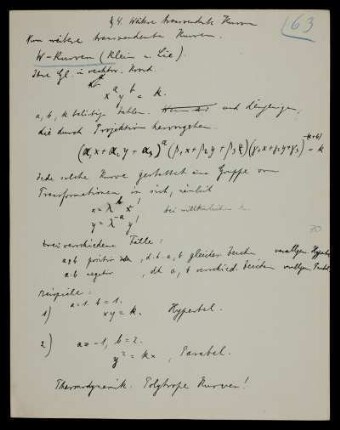 § 4. Weitere transzendente Kurven
63
Von weitere transzendenten Kurven.
W-Kurven (Klein u. Lie).
Ihre Gl. in rechtw. Koord.
x^a y^b = k.
a, b, k beliebige Zahlen. und diejenigen,
die durch Projektion hervorgehen.
(α₁x + α₂y + α₃)^a (β₁x + β₂y + β₃)^b (γ₁x + γ₂y + γ₃)^-(a+b) = k
Jede solche Kurve gestattet eine Gruppe von
Transformationen in sich, nämlich
x = λ^b x'
y = λ^-a y'
bei
Zwei verschiedene Fälle:
a·b positiv, d.h. a, b gleichen Zeichen
a·b negativ, d.h. a, b verschied. Zeichen
Beispiele.
1) a=1. b=1.
xy = k. Hyperbel.
2) a=-1, b=2.
y² = kx, Parabel.
Thermodynamik. Polytrope Kurven!